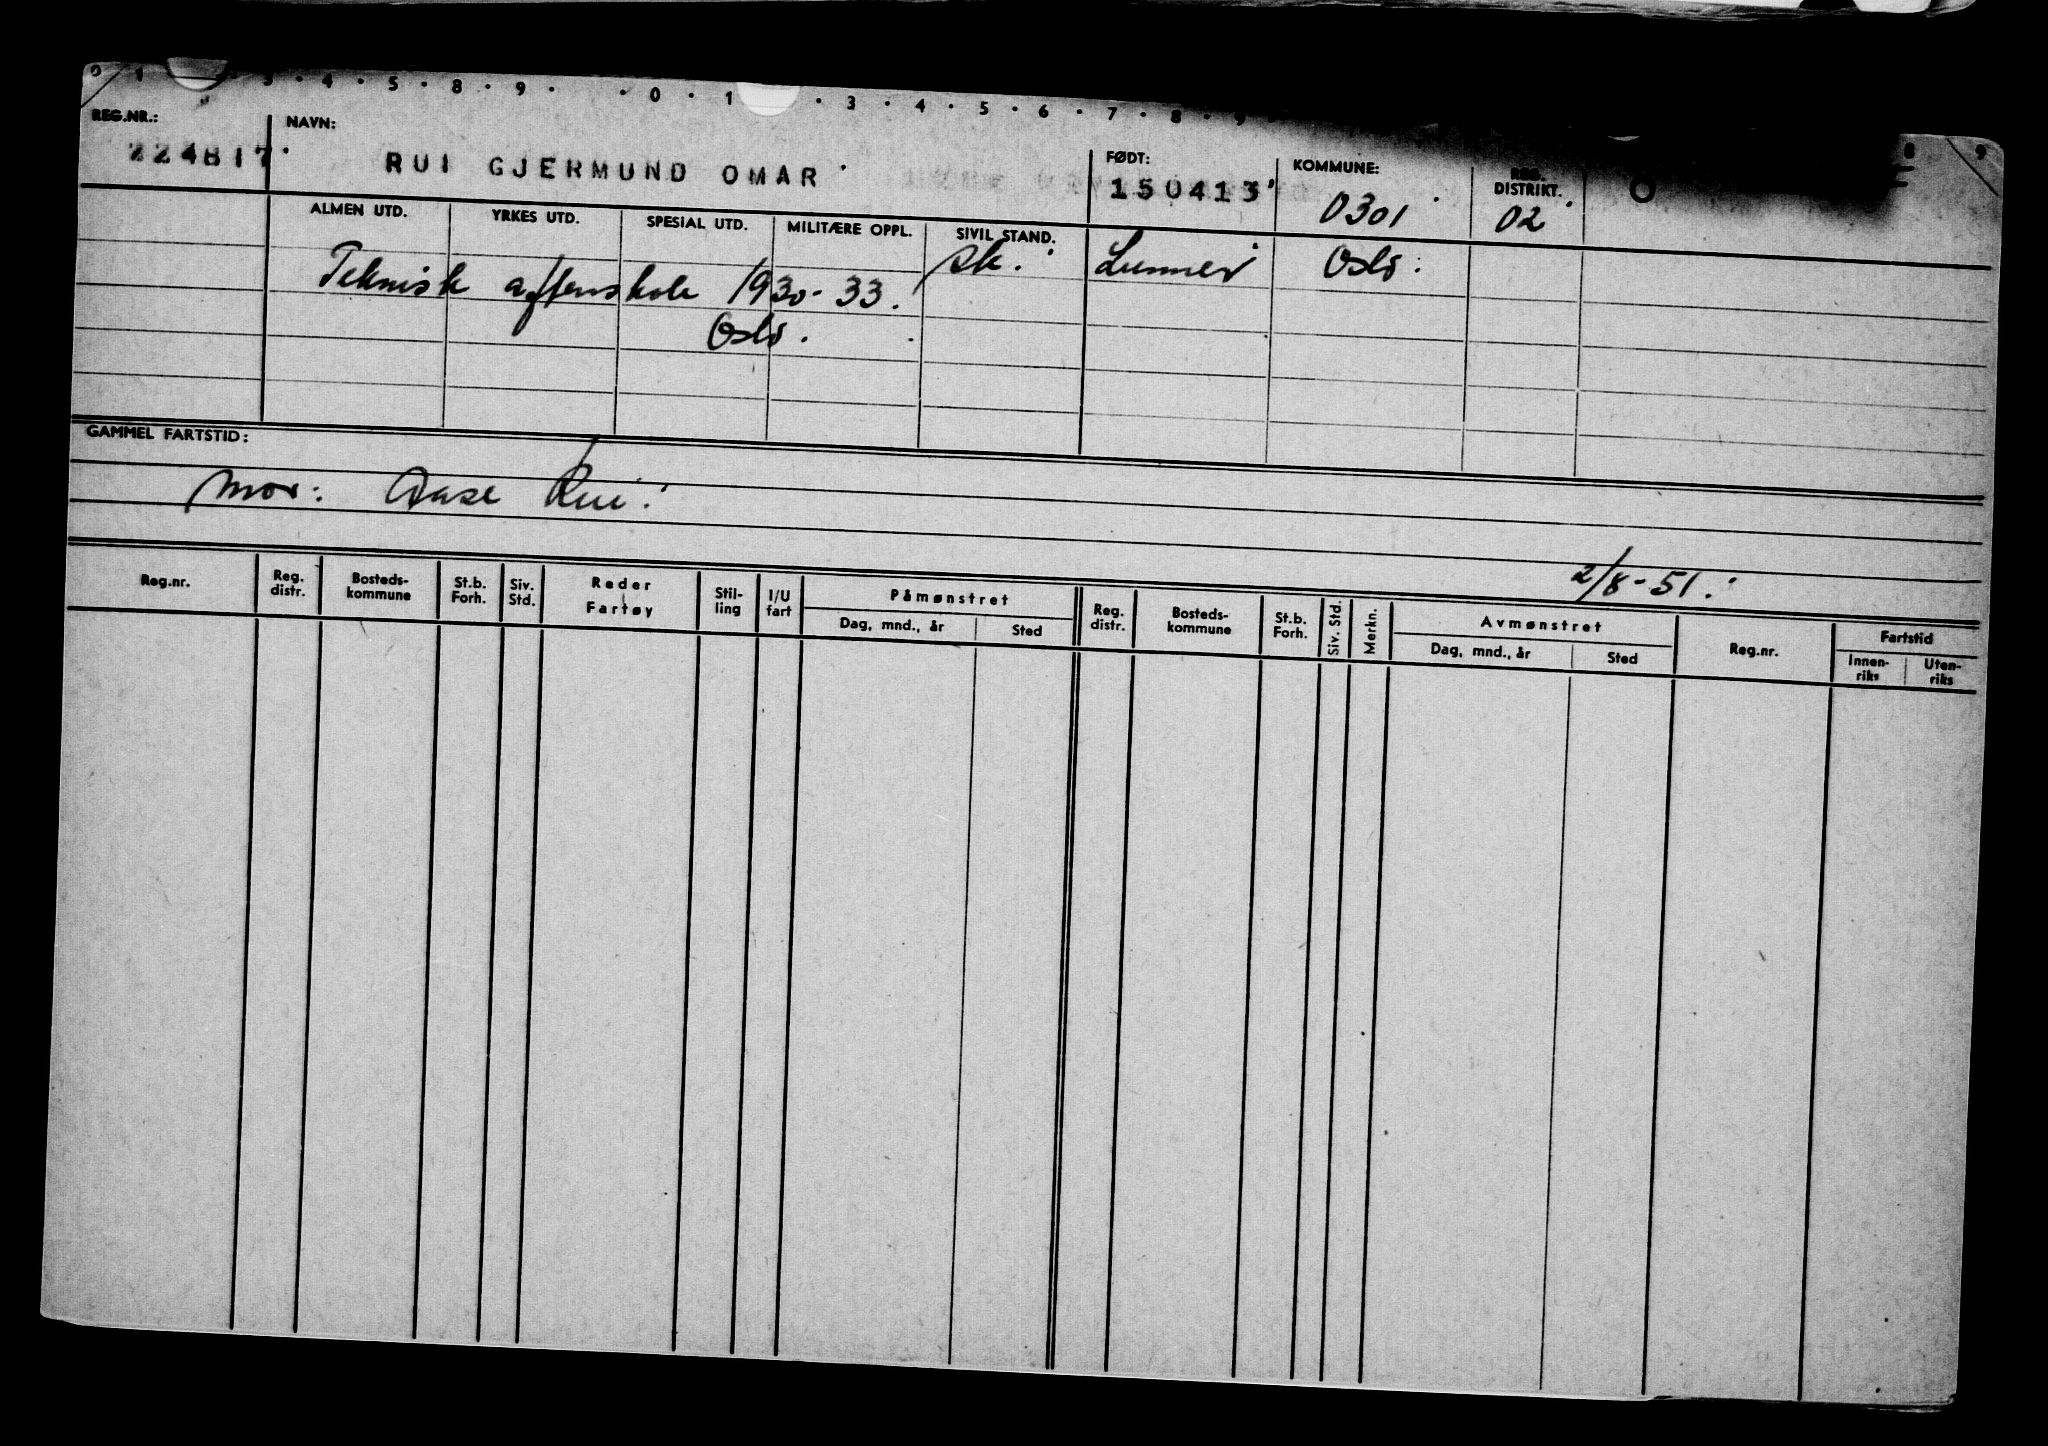 0 1 · 3 · 4 · 5 · 8 · 9 · · 0 · 1 · 3 · 4 · 5 · 6 · 7 · 8 · 9 8 9
REG.NR.: NAVN: FØDT: KOMMUNE: REG. DISTRIKT.
224817 RUI GJERMUND OMAR 150413 0301 02 O
ALMEN UTD. YRKES UTD. SPESIAL UTD. MILITÆRE OPPL. SIVIL STAND.
sk. Lunner Oslo
Teknisk aftenskole 1930-33.
Oslo.
GAMMEL FARTSTID:
Mor: Aase Rui.
2/8-51.
Reg.nr. Reg. distr. Bosteds-kommune St.b. Forh. Siv. Std. Reder Fartøy Stil-ling I/U fart Påmønstret Reg. distr. Bosteds-kommune St.b. Forh. Siv. Std. Merkn. Avmønstret Reg.nr. Fartstid
Dag, mnd., år Sted Dag, mnd., år Sted Innen-riks Uten-riks